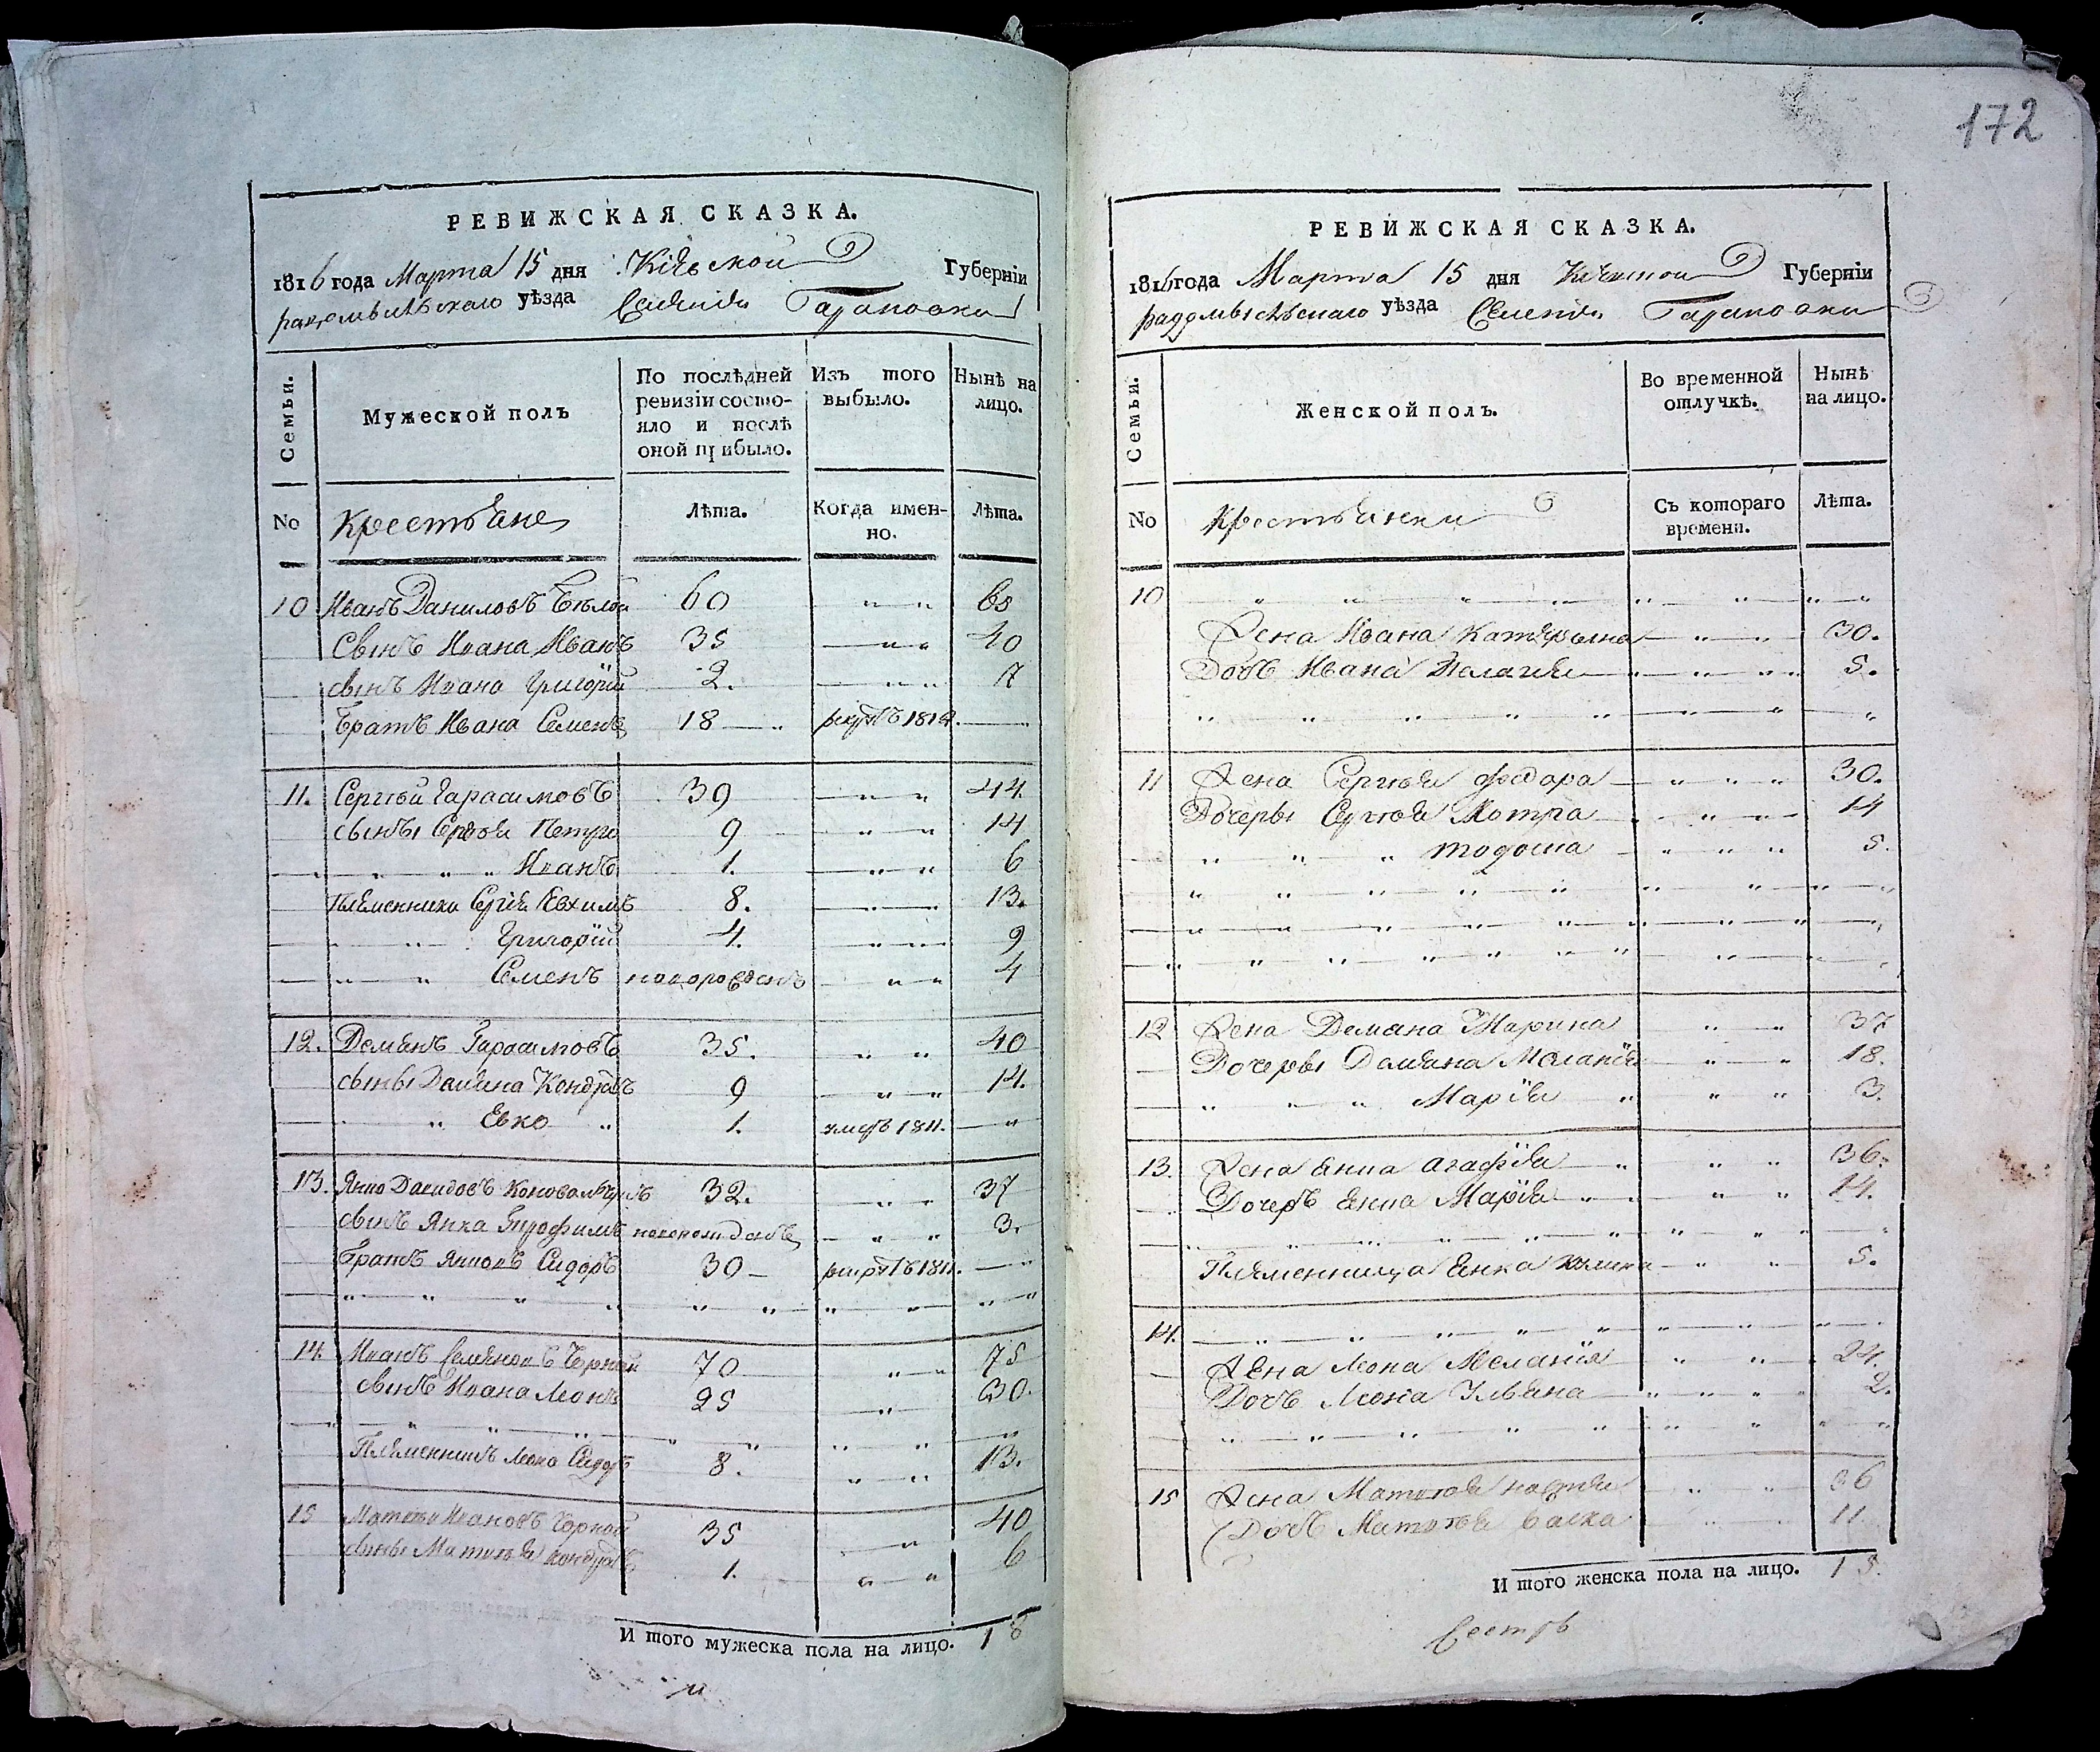 РЕВИЖСКАЯ СКАЗКА.
1816 года Марта 15 дня Кіевской Губерніи
радомысльскаго уѣзда Селенія Гапоновки
Семьи.
Мужеской полъ
По послѣдней ревизіи состо-
яло и послѣ
оной прибыло.
Изъ того
выбыло.
Нынѣ на
лицо.
No
Крестьяне
Лѣта.
Когда имен-
но.
Лѣта.
10 Иванъ Даниловъ Бѣлой 60 " " 65
Сынъ Ивана Иванъ 35 " " 40
сынъ Ивана Григорій 2. " " 7
Братъ Ивана Семенъ 18 " 
11. Сергѣй Гарасимовъ 39 " " 44.
сыны Сергѣя Петро 9 " " 14
" " " Иванъ 1. " " 6
Племенники Сергія Евхимъ 8. " " 13.
" " Григорій 4. " " 9
" " Семенъ новорожденъ " " 4
12. Демянъ Гарасимовъ 35. " " 40
сыны Дамяна Кондратъ 9 " " 14.
" " Евко " 1. умеръ 1811. "
13. Янко Давидовъ 32. " " 37
сынъ Янка Трофимъ новорожденъ " " 3.
Братъ Янковъ Сидоръ 30 рекрутъ 1811. "
14. Иванъ Семеновъ Чорной 70 " " 75
сынъ Ивана Леонъ 25 " 30.
Племенникъ Леона Сидоръ 8. " " 13.
15 Матвѣй Ивановъ Чорной 35 " 40
сыны Матвѣя Кондратъ 1. " " 6
И того мужеска пола на лицо. 18
172
РЕВИЖСКАЯ СКАЗКА.
1816 года Марта 15 дня Кіевской Губерніи
радомысльскаго уѣзда Селенія Гапоновки
Семьи.
Женской полъ.
Во временной
отлучкѣ.
Нынѣ
на лицо.
No
Крестьянки
Съ котораго
времени.
Лѣта.
10 " " " " " " " "
Жена Ивана Катерина " " 30.
Дочь Ивана Пелагія " " " 5.
11 Жена Сергѣя Федора " " " 30.
Дочеры Сергѣя Мотра " " " 14
" " " Тодосия " " " 5.
12 Жена Демяна Марина " " 37
Дочеры Дамяна Меланія " " 18.
" " " Марія " " " 3.
13. Жена Янка Агафія " " " 36.
Дочеръ Янка Марія " " " 14.
Племенница Янка " " 5.
14.
Жена Леона Меланія " " 24.
Дочь Леона Ульяна " " " 2.
15 Жена Матвѣя " " 36
Дочь Матвѣя " " 11
И того женска пола на лицо. 15.